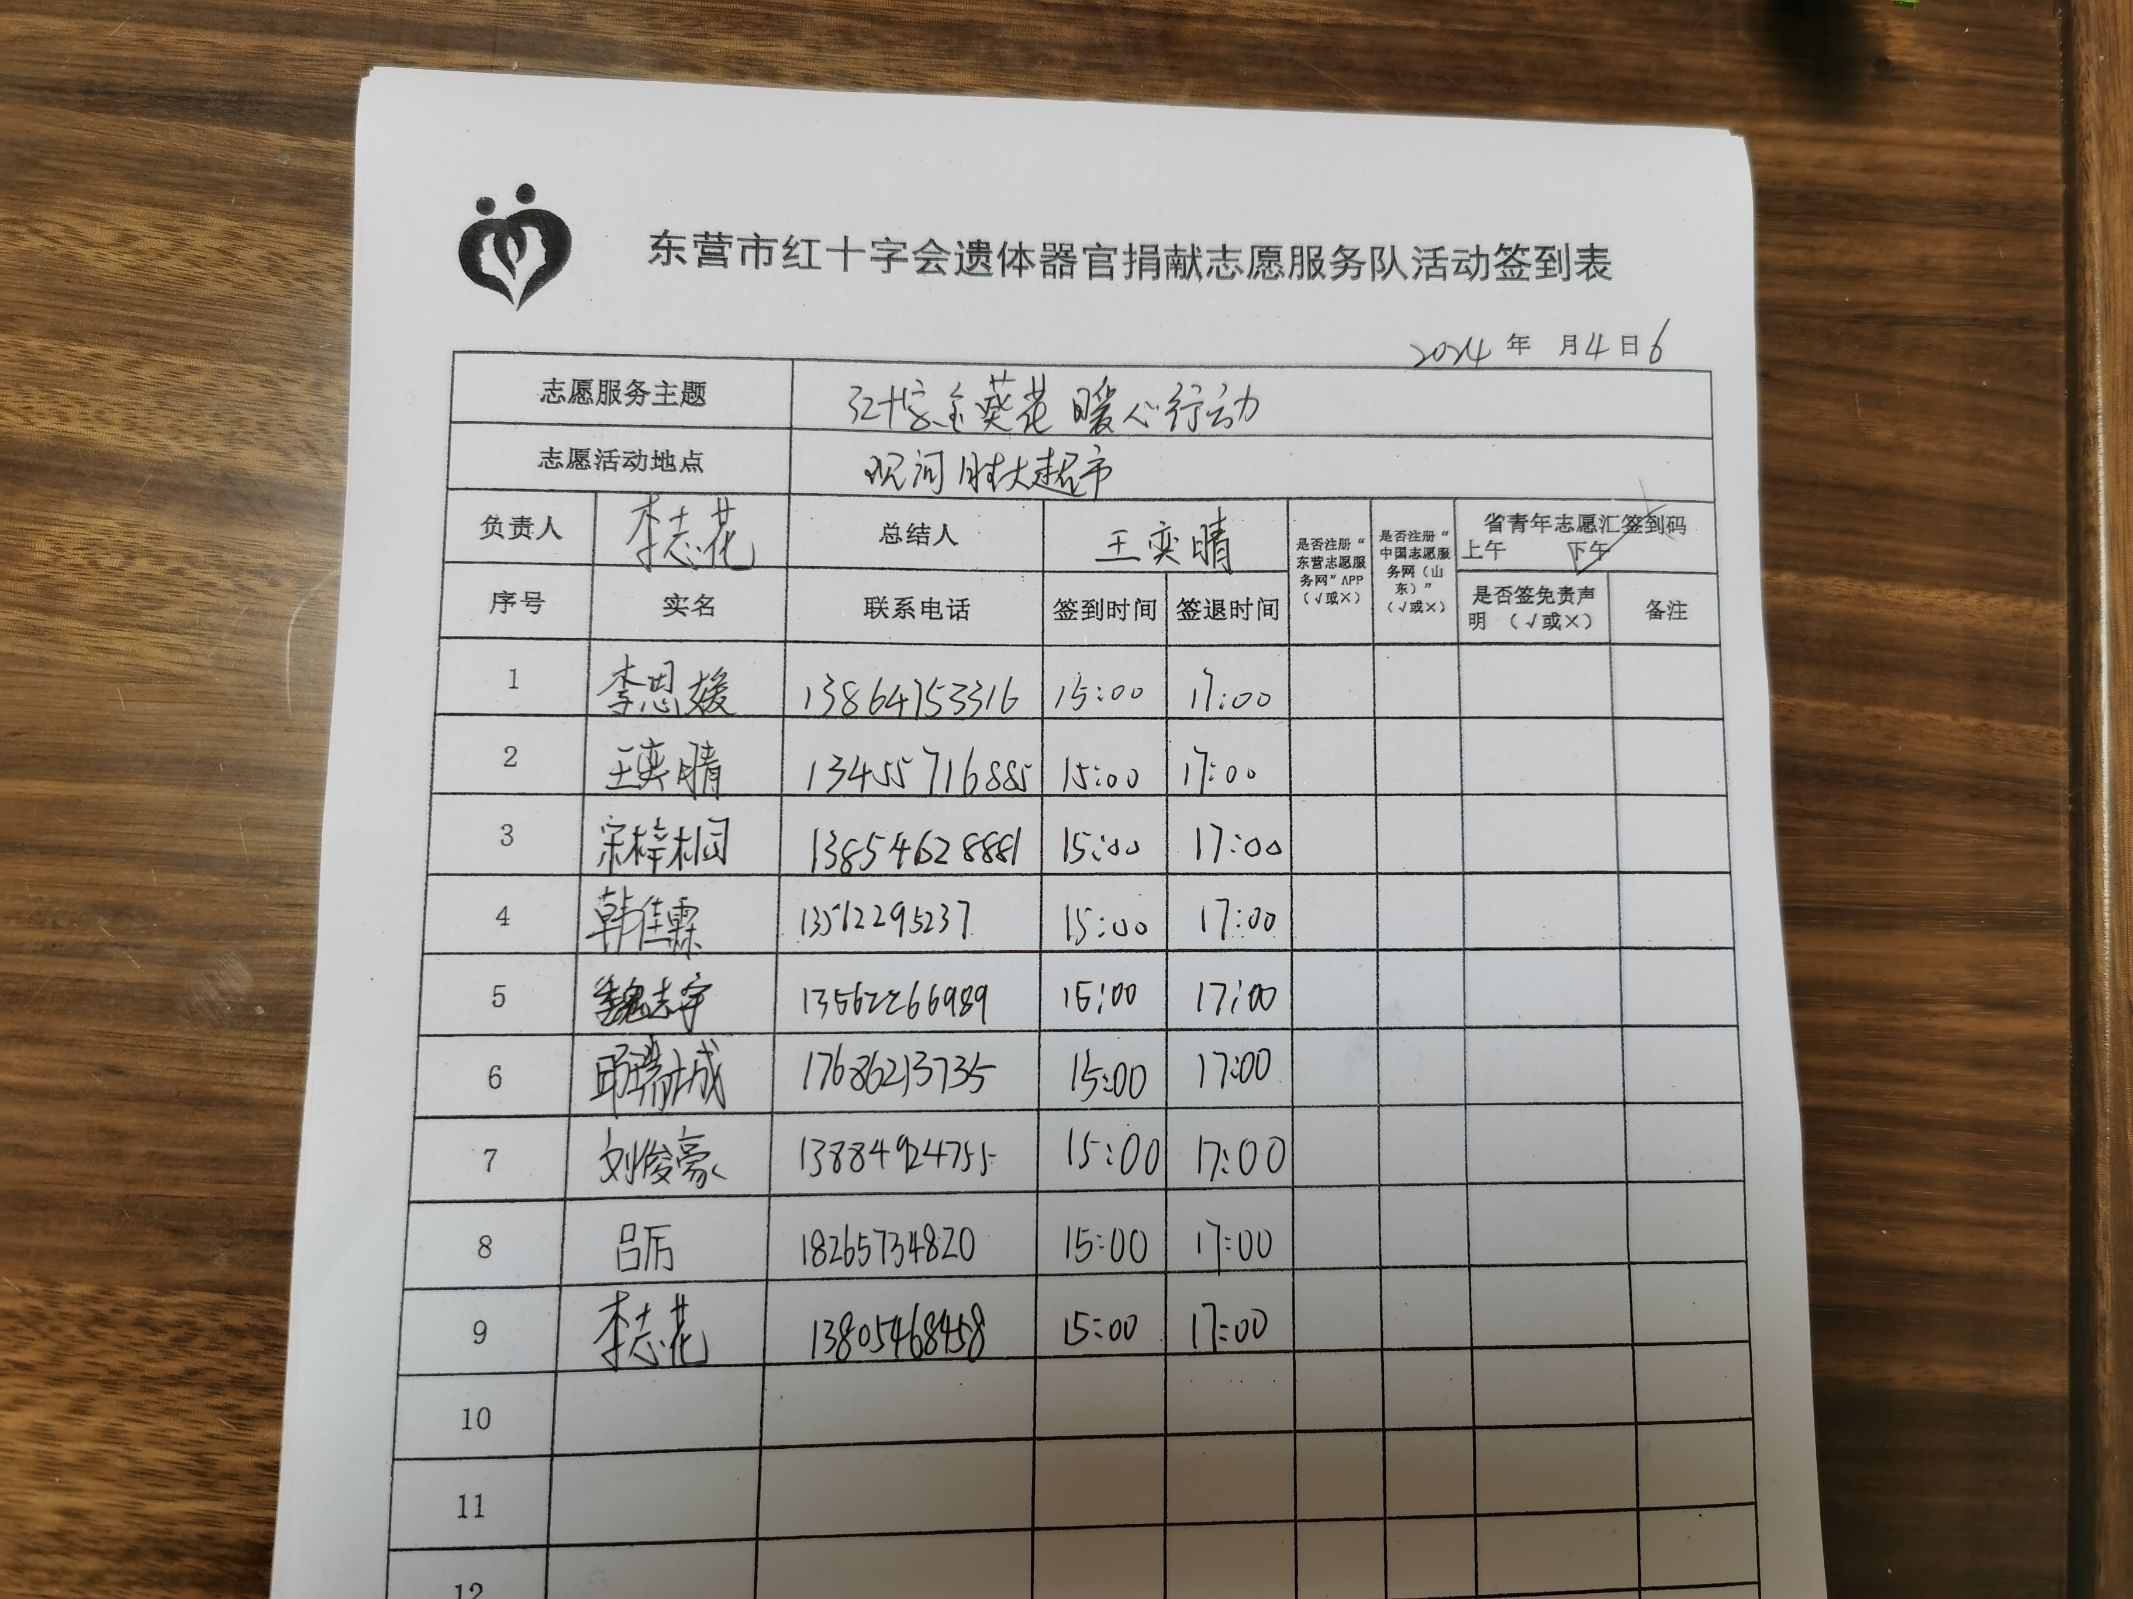 东营市红十字会遗体器官捐献志愿服务队活动签到表
2024 年 月4日6
志愿服务主题 红十字会葵花暖心行动
志愿活动地点 观河胜大超市
负责人 李志花 总结人 王奕晴 是否注册“东营志愿服务网”APP（√或×） 是否注册“中国志愿服务网（山东）”（√或×） 省青年志愿汇签到码 上午 下午
序号 实名 联系电话 签到时间 签退时间 是否签免责声明 （√或×） 备注
1 李思媛 13864753316 15:00 17:00
2 王奕晴 13455716885 15:00 17:00
3 宋梓桐 13854628881 15:00 17:00
4 韩佳霖 13512295237 15:00 17:00
5 魏志宇 13562266989 15:00 17:00
6 17686213735 15:00 17:00
7 刘俊豪 13884924755 15:00 17:00
8 吕厉 18265734820 15:00 17:00
9 李志花 13805468458 15:00 17:00
10
11
12